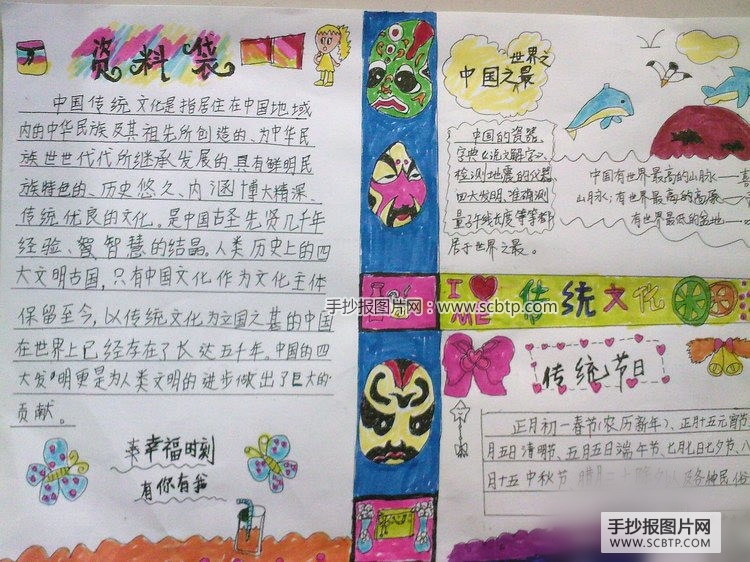 资料袋
中国传统文化是指居住在中国地域
内的中华民族及其祖先所创造的、为中华民
族世世代代所继承发展的、具有鲜明民
族特色的、历史悠久、内涵博大精深、
传统优良的文化。是中国古圣先贤几千年
经验、智慧的结晶。人类历史上的四
大文明古国,只有中国文化作为文化主体
保留至今,以传统文化为立国之基的中国
在世界上已经存在了长达五千年。中国的四
大发明更是为人类文明的进步做出了巨大的
贡献。
幸福时刻
有你有我
世界之
中国之最
中国的瓷器、
字典《说文解字》、
检测地震的仪器
四大发明、准确测
量子午线长度等等都
居于世界之最。
中国有世界最高的山脉——喜
山脉;有世界最高的高原——
有世界最低的盆地——
手抄报图片网:www.scbtp.com
I ME
传统文化
传统节日
正月初一春节(农历新年)、正月十五元宵节
月五日清明节、五月五日端午节、七月七日七夕节、八
月十五中秋节
各种民俗
手抄报图片网
WWW.SCBTP.COM